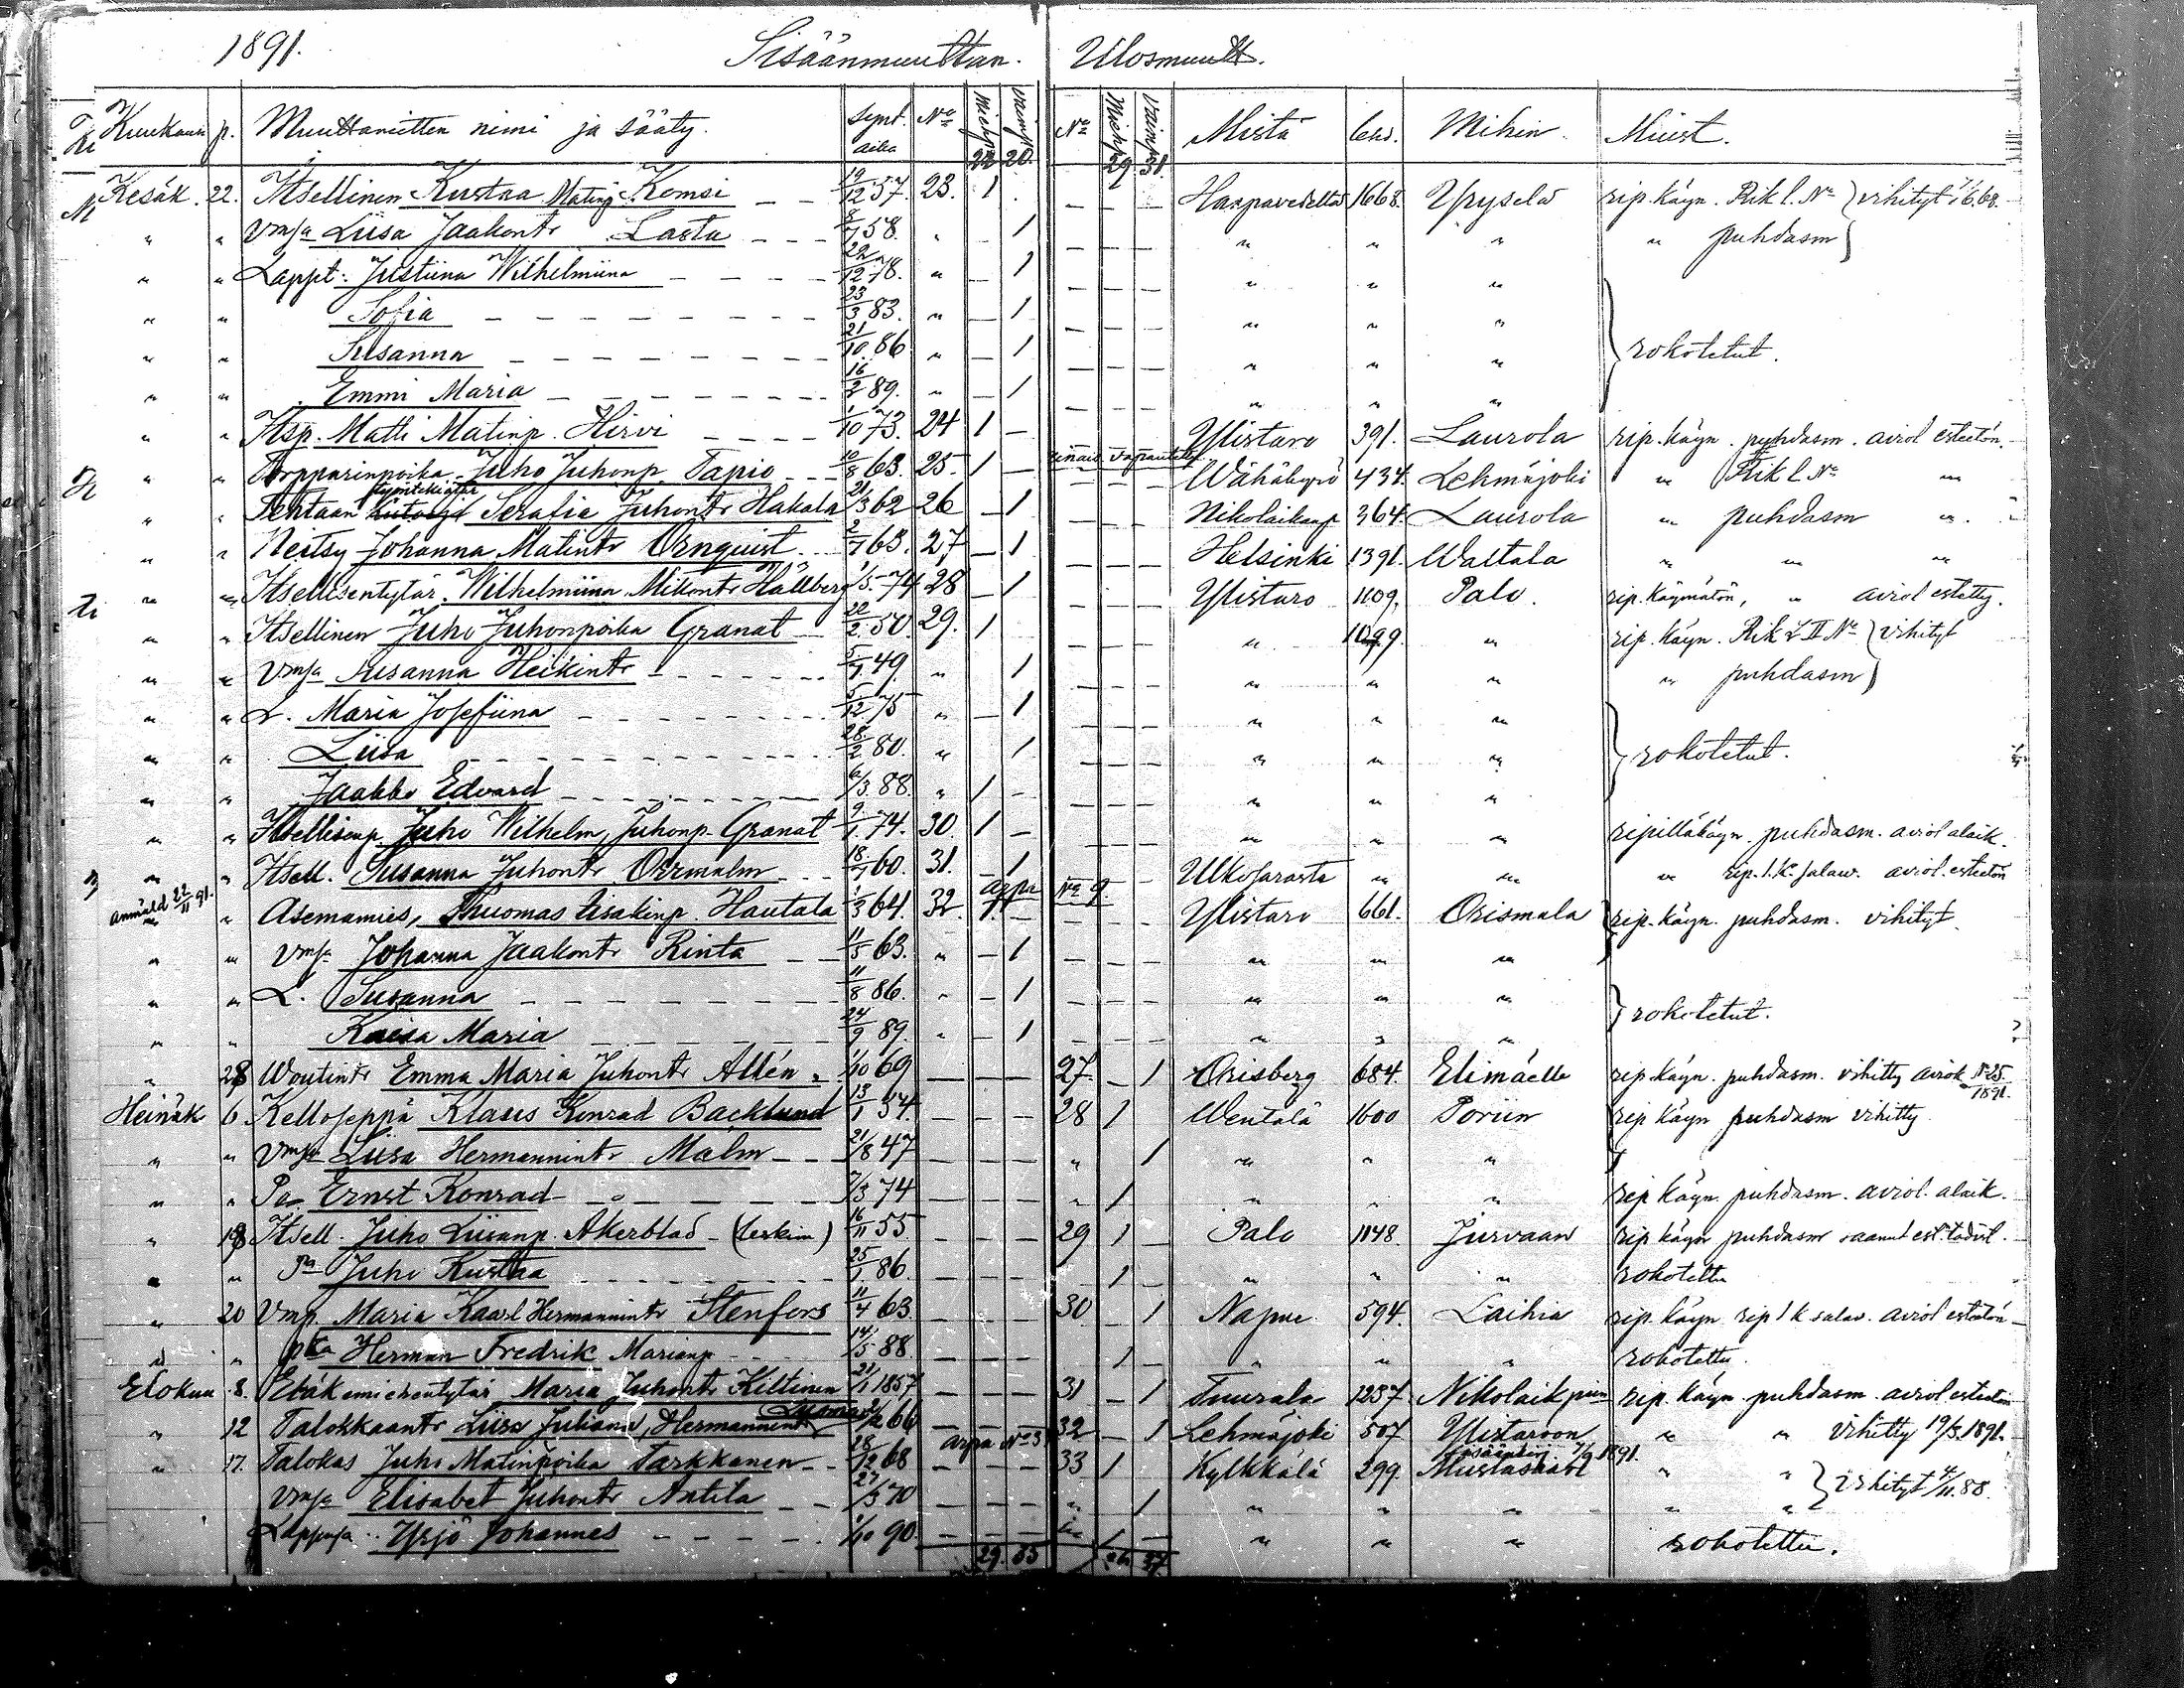 1891. Sisäänmuuttan. Ulosmuutt.
Kuukausi p. Muuttaneitten nimi ja sääty. Synt. aika No Miehp. Vaimop. No Miehp. Vaimop. Mistä Mihin Muist.
22 20. 29 31.
Kesäk. 22. Itsellinen Kustaa Matinp. Komsi 19/12 57. 23. 1 Haapavedeltä 1668. Yrysela rip. käyn. Rik l. No vihityt
" " Vmsa Liisa Jaakontr Lasta 8/7 58. " 1 " " " " puhdasm
" " Lappt: Justiina Wilhelmiina 22/12 78. " 1 " " "
" " Sofia 23/3 83. " 1 " " "
" " Susanna 21/10 86 " 1 " " " rokotetut.
" " Emmi Maria 16/2 89. " 1 " " "
" " Itsp. Matti Matinp. Hirvi 1/10 73. 24 1 Ylistaro 391. Laurola rip. käyn. puhdasm. aviol esteetön.
" " Torpparinpoika Juho Juhonp. Tapio 10/8 63. 25. 1 Wähäkyrö 434. Lehmäjoki " Rik l No "
" " Tehtaan työntekijätär Serafia Juhontr Hakala 21/3 62 26 1 Nikolaikaup 364. Laurola " puhdasm "
" " Neitsy Johanna Matintr Örnquist 2/7 63. 27 1 Helsinki 1391. Waltala " " "
" " Itsellisentytär Wilhelmiina Mikontr Hällberg 1/5 74 28 1 Ylistaro 1109. Palo. rip. käymätön, " aviol estetty.
" " Itsellinen Juho Juhonpoika Granat 22/2 50 29. 1 " 1099. " rip. käyn. Rik l II No vihityt
" " Vmsa Susanna Heikintr 5/7 49. " 1 " " " " puhdasm
" " L. Maria Josefiina 5/12 75 " 1 " " "
" " Liisa 28/2 80. " 1 " " " rokotetut.
" " Jaakko Edvard 6/3 88. " 1 " " "
" " Itsellisenp. Juho Wilhelm Juhonp. Granat 9/1 74. 30. 1 " " " ripilläkäyn. puhdasm. aviol alaik.
" " Itsell. Susanna Juhontr Öhrmalm 18/7 60. 31. 1 Ulkosarasta " " " rip. l. k. salaw. aviol. esteetön
anmäld 22/11 91. " Asemamies, Thuomas Iisakinp. Hautala 1/3 64. 32. 1 arpa No 9. Ylistaro 661. Orismala rip. käyn. puhdasm. vihityt.
" " Vmsa Johanna Jaakontr Rinta 11/5 63. " 1 " " "
" " L. Susanna 11/8 86. " 1 " " " rokotetut.
" " Kaisa Maria 24/9 89. " 1 " " "
" 28 Woutintr Emma Maria Juhontr Allén 1/10 69 27 1 Orisberg 684. Elimäelle rip. käyn. puhdasm. vihitty aviok No 25/1891.
Heinäk 6 Kelloseppä Klaus Konrad Backlund 13/1 54. 28 1 Wentälä 1600 Poriin rip käyn puhdasm vihitty
" " Vmsa Liisa Hermannintr Malm 21/8 47 " 1 " " "
" " Pa Ernst Konrad 7/3 74 " 1 " " " rip käyn. puhdasm. aviol. alaik.
" 18 Itsell. Juho Liisanp. Åkerblad (leskim) 16/11 55 29 1 Palo 1148. Jurvaan rip käyn puhdasm saanut est. todist.
" " Pa Juho Kustaa 25/1 86. 1 " " " rokotettu
" 20 Vmp. Maria Kaarl Hermannintr Stenfors 11/4 63 30 1 Napue 594. Laihia rip. käyn. rip l k salaw. aviol esteetön
" " pka Herman Fredrik Marianp. 14/5 88. 1 " " " rokotettu.
Elokuu 8. Eläkemiehentytär Maria Juhontr Kiltinen 21/1 1857 31 1 Tuurala 1237 Nikolaik piin rip. käyn. puhdasm. aviol esteetön
" 12 Talokkaantr Liisa Juliana, Hermannintr 66 32 1 Lehmäjoki 507 Ylistaroon " " vihitty 19/3. 1891.
" 17. Talokas Juho Matinpoika Tarkkanen 28/12 68 arpa No 3 33 1 Kylkkälä 299 Mustasaari 1891. " "
Vmsa Elisabet Juhontr Antila 27/5 70 " 1 " " " " " vihityt 4/11. 88.
Lappensa Yrjö Johannes 1/10 90 " 1 " " " rokotettu.
29. 35 37